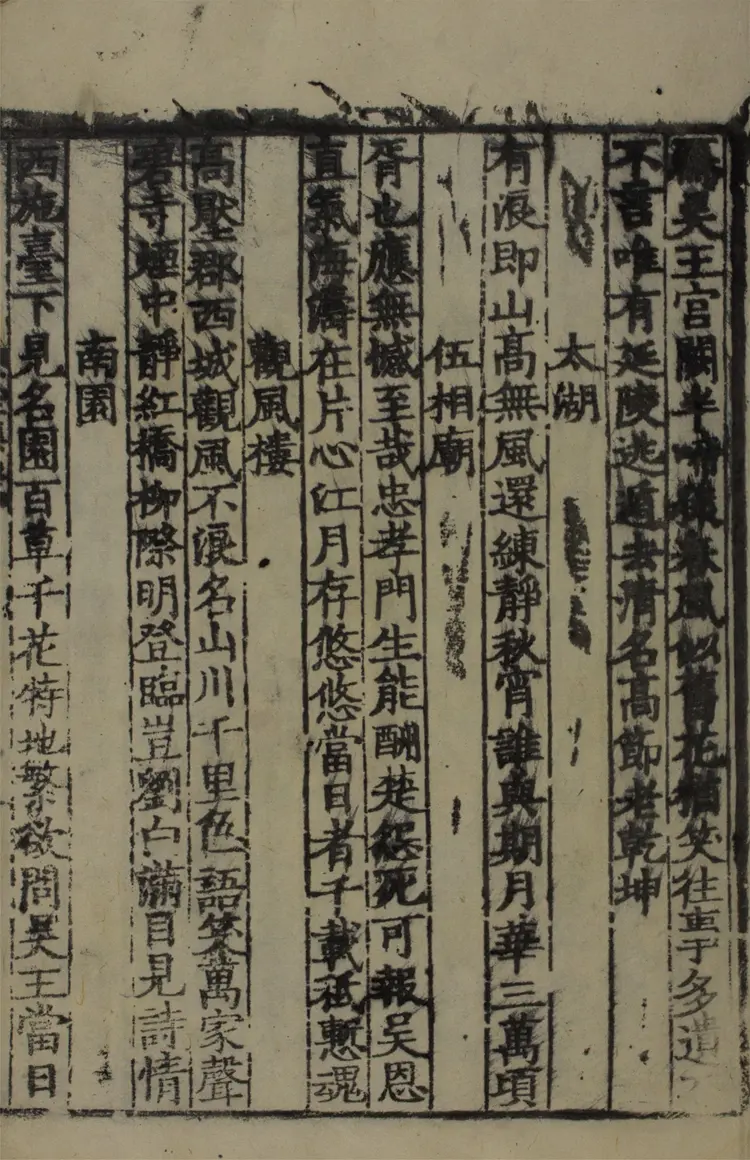 鴈吳王宮闕半啼猿春風似舊花猶笑往事多遺石
不言唯有延陵逃遁去清名高節老乾坤
太湖
有浪即山高無風還練靜秋宵誰與期月華三萬頃
伍相廟
胥也應無憾至哉忠孝門生能酬楚怨死可報吳恩
直氣海濤在片心江月存悠悠當日者千載秪慙魂
觀風樓
高壓郡西城觀風不浪名山川千里色語笑萬家聲
碧寺煙中靜紅橋柳際明登臨豈劉白滿目見詩情
南園
西施臺下見名園百草千花特地繁欲問吳王當日